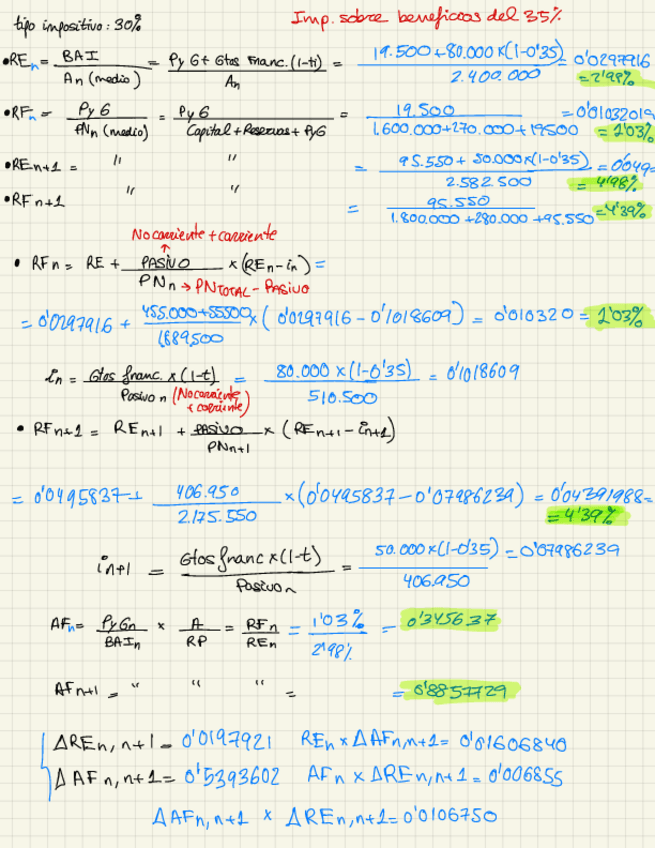 tipo impositivo: 30%
Imp. sobre beneficios del 35%
• REn = BAI / An (medio) = PyG + Gtos Franc. (1-ti) / An = 19.500 + 80.000 x (1-0'35) / 2.400.000 = 0'0297916 = 2'98%
• RFn = PyG / PNn (medio) = PyG / Capital + Reservas + PyG = 19.500 / 1.600.000 + 270.000 + 19500 = 0'01032019 = 1'03%
• REn+1 = " " = 95.550 + 50.000x(1-0'35) / 2.582.500 = 0'049- = 4'98%
• RFn+1 " " = 95.550 / 1.800.000 + 280.000 + 95.550 = 4'39%
No corriente + corriente
• RFn = RE + PASIVO / PNn → PN TOTAL - PASIVO x (REn - in) =
= 0'0297916 + 455.000 + 55500 / 1.889.500 x (0'0297916 - 0'1018609) = 0'010320 = 1'03%
in = Gtos franc. x (1-t) / Pasivo n (No corriente + corriente) = 80.000 x (1-0'35) / 510.500 = 0'1018609
• RFn+1 = REn+1 + PASIVO / PNn+1 x (REn+1 - in+1)
= 0'0495837 + 406.950 / 2.175.550 x (0'0495837 - 0'07986239) = 0'04391988 = = 4'39%
in+1 = Gtos franc x (1-t) / Pasivo n = 50.000 x (1-0'35) / 406.950 = 0'07986239
AFn = PyGn / BAIn x A / RP = RFn / REn = 1'03% / 2'98% = 0'345637
AFn+1 = " " " = = 0'8857729
ΔREn, n+1 = 0'0197921 REn x ΔAFn,n+1 = 0'01606840
ΔAFn, n+1 = 0'5393602 AFn x ΔREn, n+1 = 0'006855
ΔAFn, n+1 x ΔREn, n+1 = 0'0106750